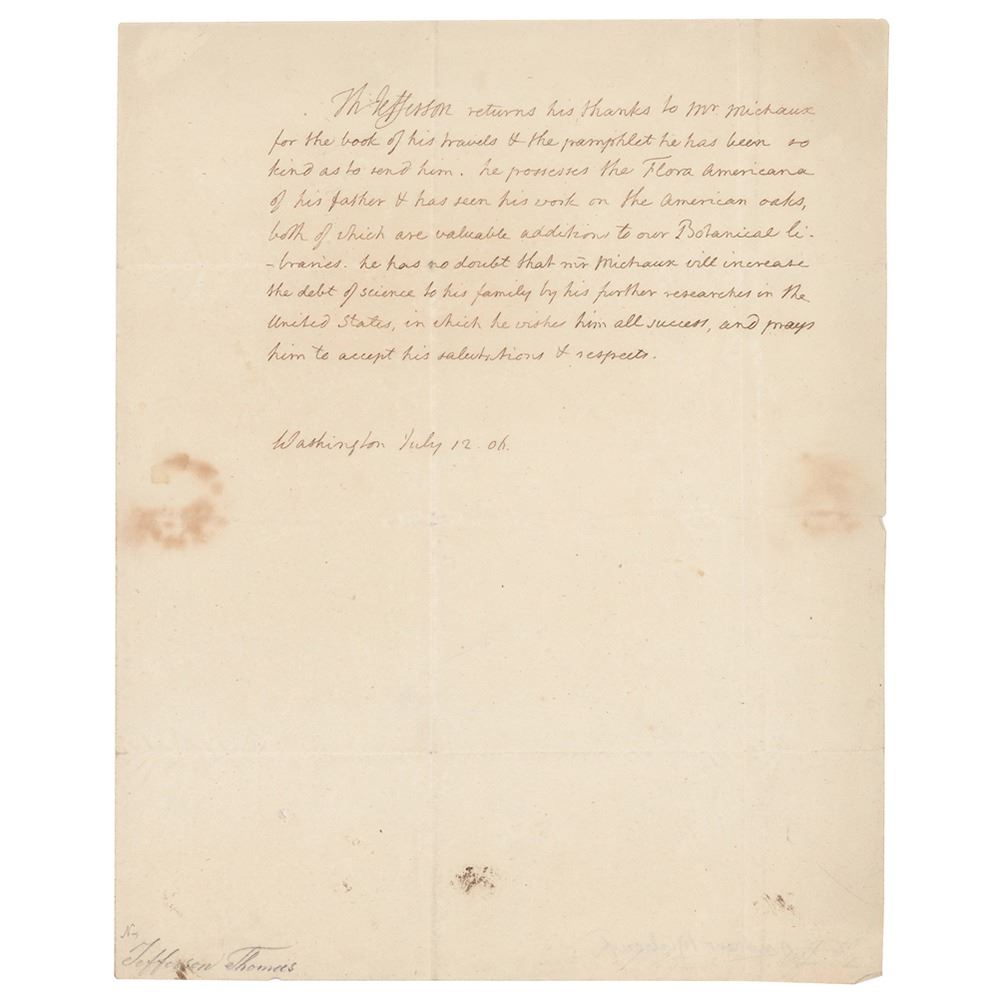 Th: Jefferson returns his thanks to Mr. Michaux
for the book of his travels & the pamphlet he has been so
kind as to send him. he possesses the Flora Americana
of his father & has seen his work on the American oaks,
both of which are valuable additions to our Botanical li-
-braries. he has no doubt that mr Michaux will increase
the debt of science to his family by his further researches in the
United States, in which he wishes him all success, and prays
him to accept his salutations & respects.
Washington July 12. 06.
Jefferson Thomas